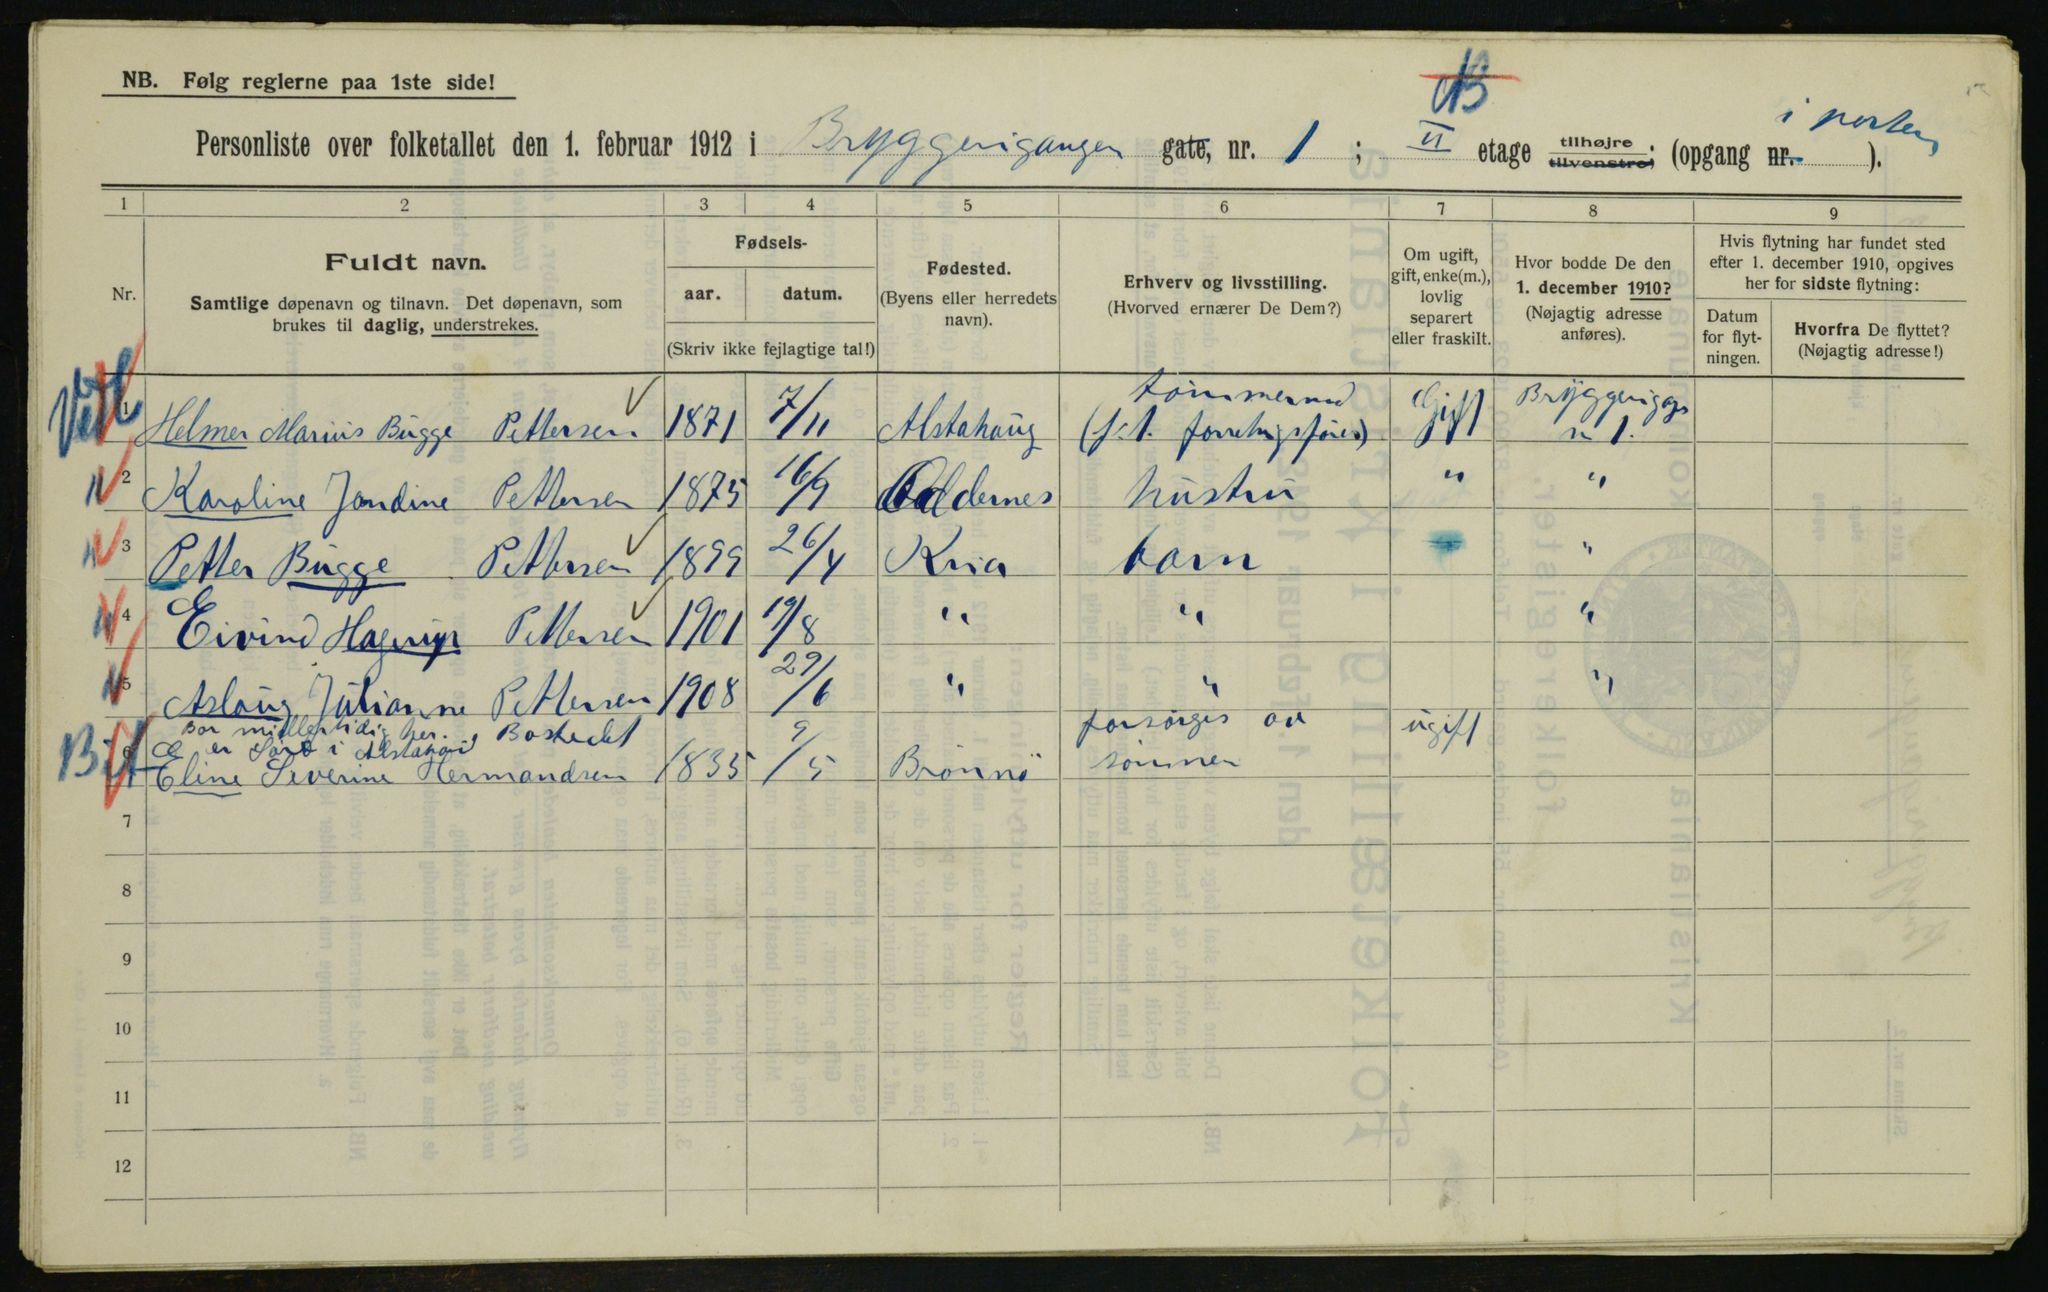 NB. Følg reglerne paa 1ste side!
Personliste over folketallet den 1. februar 1912 i Bryggerigangen gate, nr. 1 ; II etage tilhøjre tilvenstre; (opgang nr. i porten ).
1 2 3 4 5 6 7 8 9
Nr.
Fuldt navn.
Samtlige døpenavn og tilnavn. Det døpenavn, som
brukes til daglig, understrekes.
Fødsels-
aar. datum.
(Skriv ikke fejlagtige tal!)
Fødested.
(Byens eller herredets
navn).
Erhverv og livsstilling.
(Hvorved ernærer De Dem?)
Om ugift,
gift, enke(m.),
lovlig
separert
eller fraskilt.
Hvor bodde De den
1. december 1910?
(Nøjagtig adresse
anføres).
Hvis flytning har fundet sted
efter 1. december 1910, opgives
her for sidste flytning:
Datum
for flyt-
ningen.
Hvorfra De flyttet?
(Nøjagtig adresse!)
1 Helmer Marius Bugge Pettersen 1871 7/11 Alstahaug tømmermd (f.t. forretngsfører) Gift Bryggerigag n 1.
2 Karoline Jondine Pettersen 1875 16/9 Oddernes hustru " "
3 Petter Bugge Pettersen 1899 26/4 Kria barn "
4 Eivind Hagerup Pettersen 1901 19/8 " " "
5 Aslaug Julianne Pettersen 1908 29/6 " " "
Bor midlertidig her. Bostedet
er Søve i Alstahaug
6 Eline Severine Hermandsen 1835 9/5 Brønnø forsørges av sønnen ugift
7
8
9
10
11
12